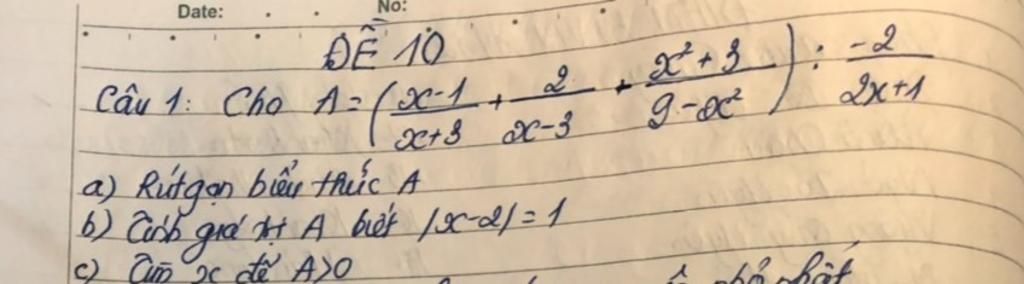 Date: No:
ĐỀ 10
Câu 1: Cho A = ( (x-1)/(x+3) + 2/(x-3) + (x²+3)/(9-x²) ) : (-2)/(2x+1)
a) Rút gọn biểu thức A
b) Tính giá trị A biết |x-2| = 1
c) Tìm x để A>0
nhỏ nhất